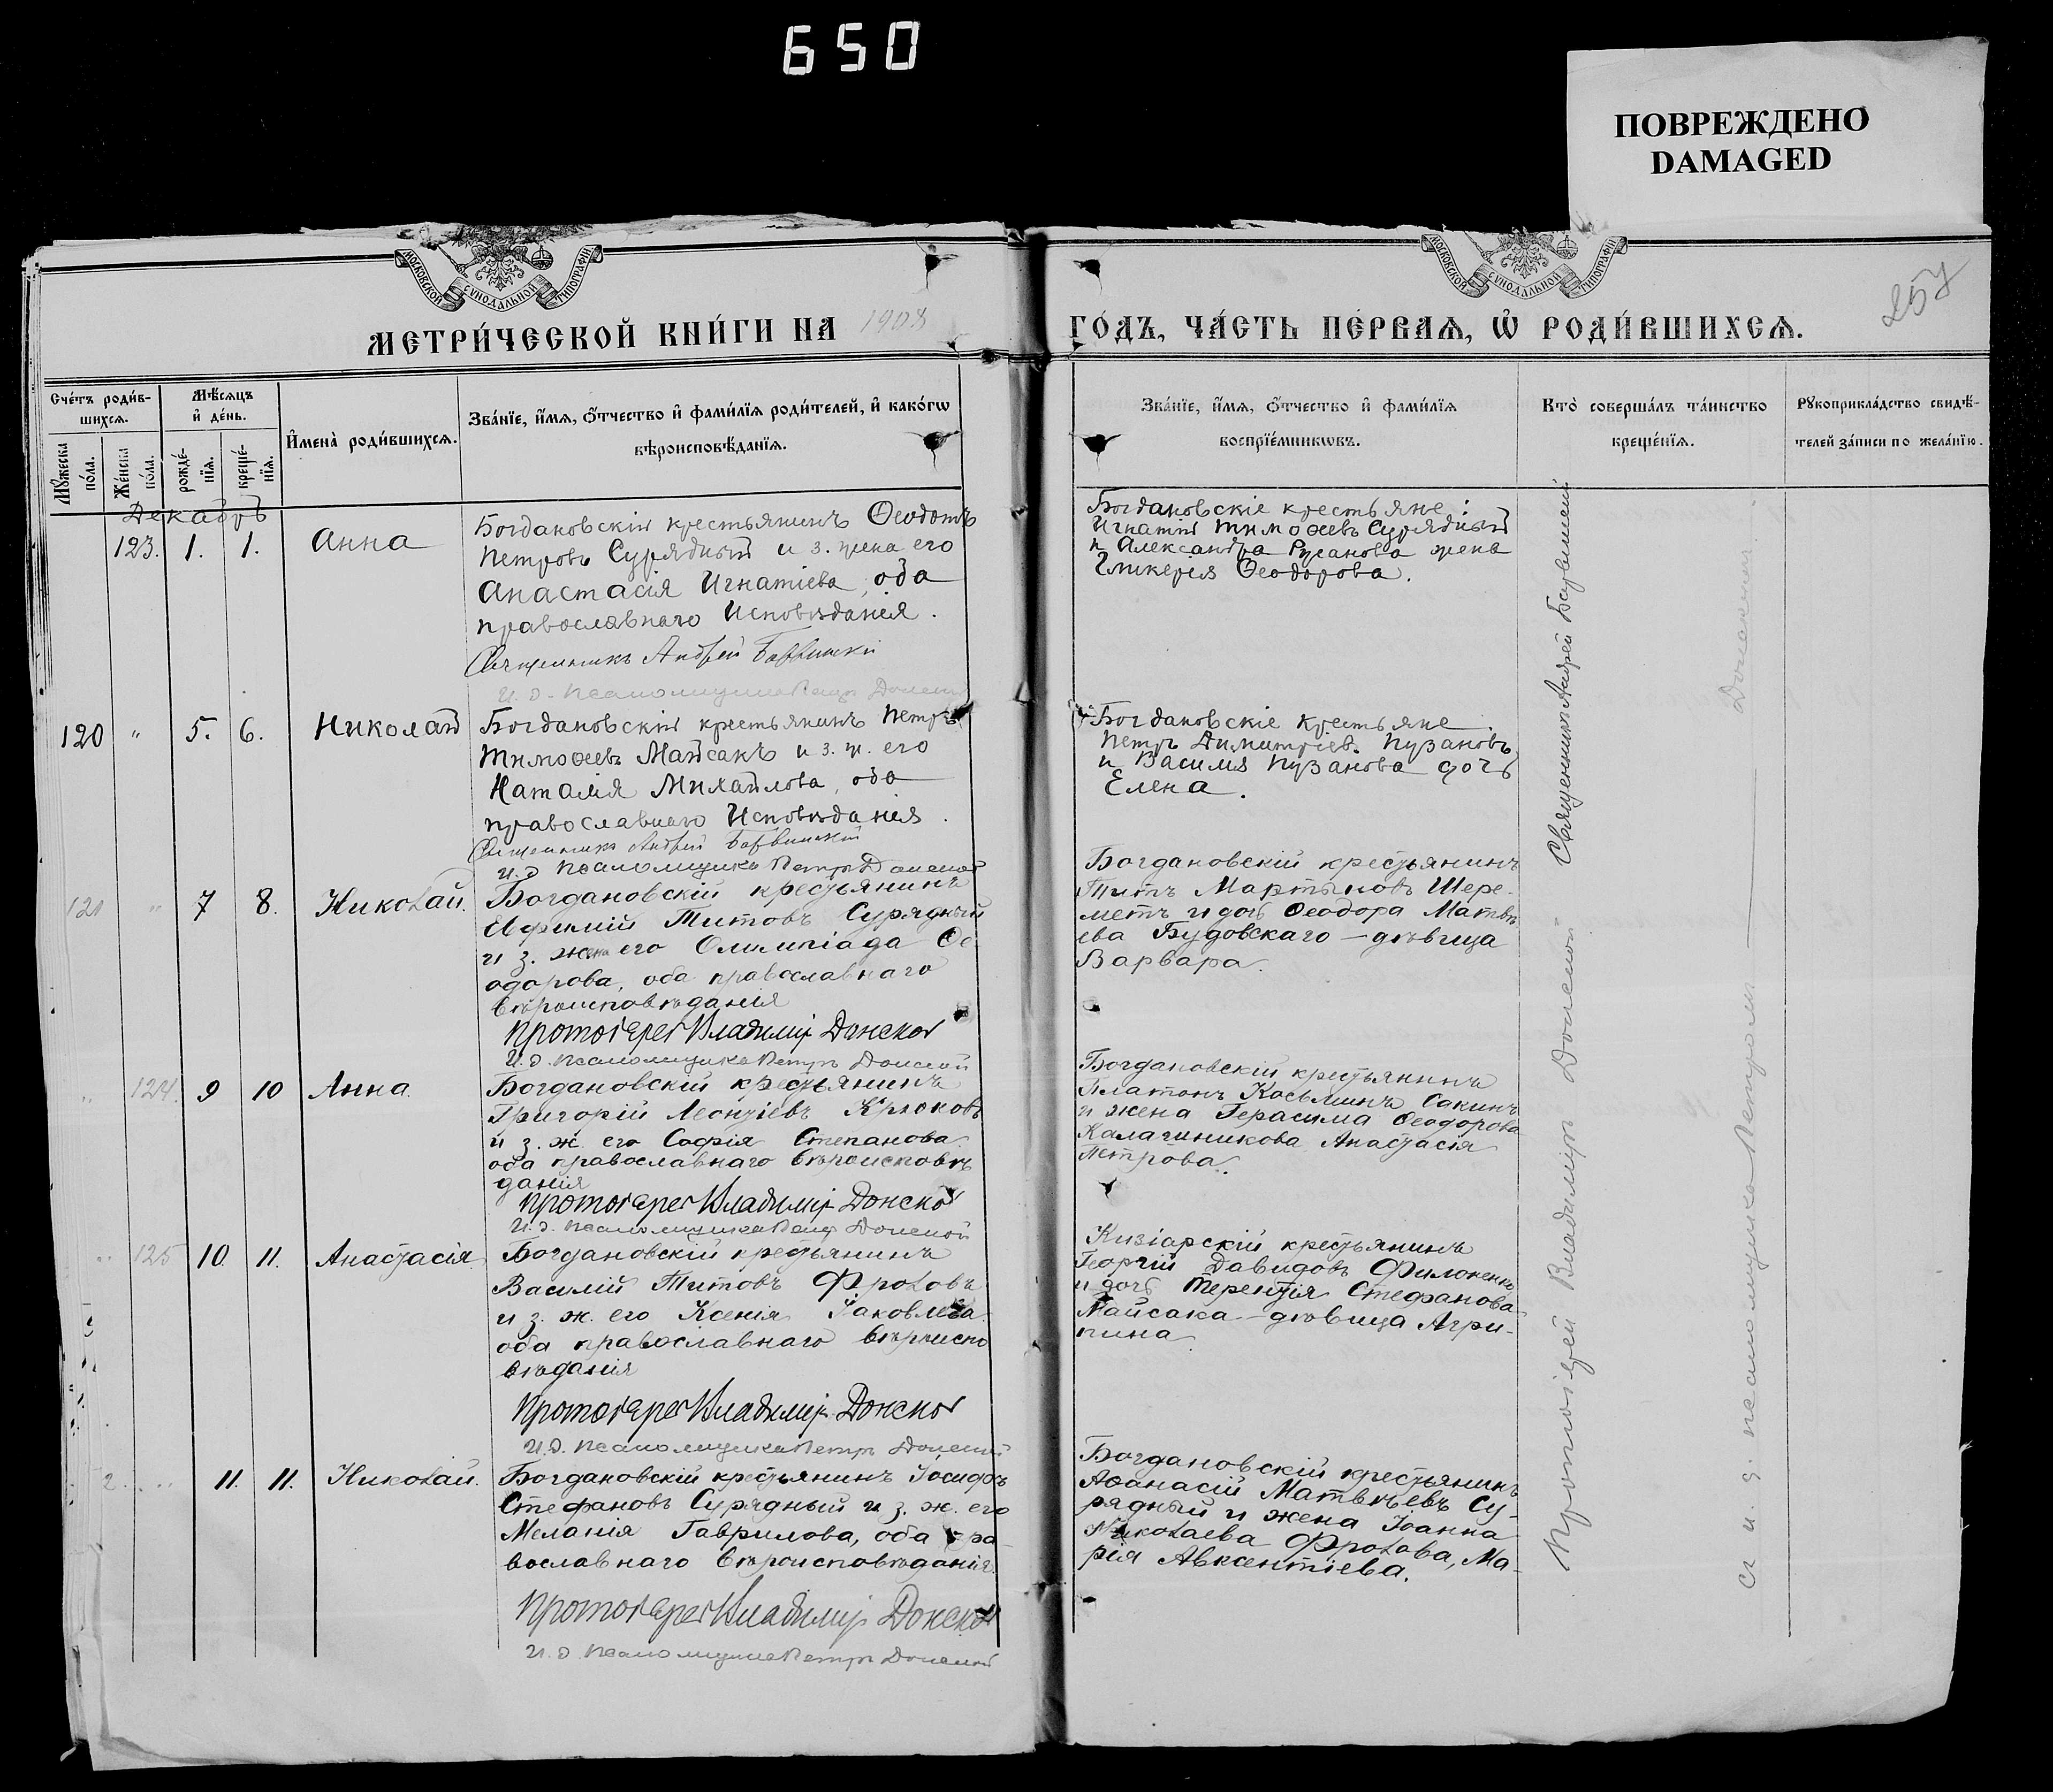 650
ПОВРЕЖДЕНО
DAMAGED
МОСКОВСКОЙ СѴНОДАЛЬНОЙ ТИПОГРАФІИ
МОСКОВСКОЙ СѴНОДАЛЬНОЙ ТИПОГРАФІИ
257
МЕТРИ́ЧЕСКОЙ КНИ́ГИ НА 1908 ГО́ДЪ, ЧА́СТЬ ПЕ́РВАѦ, Ѽ РОДИ́ВШИХСѦ.
Сче́тъ роди́в-
шихсѧ.
Мꙋ́жеска по́ла.
Же́нска по́ла.
Мѣ́сяцъ и҆ де́нь.
рожде́-нїѧ.
креще́-нїѧ.
И҆мена̀ роди́вшихсѧ.
Зва́нїе, и҆́мѧ, ѻ҆́тчество и҆ фами́лїѧ роди́телей, и҆ како́гѡ
вѣроисповѣ́данїѧ.
Зва́нїе, и҆́мѧ, ѻ҆́тчество и҆ фами́лїѧ
воспрїе́мникѡвъ.
Кто̀ соверша́лъ та́инство
креще́нїѧ.
Рꙋкоприкла́дство свидѣ́-
телей за́писи по жела́нїю.
Декабрь
123. 1. 1. Анна
Богдановскій крестьянинъ Ѳеодотъ
Петровъ Сурядный и з. жена его
Анастасія Игнатіева, оба
православнаго Исповѣданія.
Священникъ Андрей Барвинскій
И. д. псаломщика Петръ Донской
Богдановскіе крестьяне:
Игнатій Тимоѳеевъ Сурядный
и Александра Русанова жена
Гликерія Ѳеодорова.
120 " 5. 6. Николай
Богдановскій крестьянинъ Петръ
Тимоѳеевъ Майсакъ и з. ж. его
Наталія Михайлова, оба
православнаго Исповѣданія.
Священникъ Андрей Барвинскій
И. д. псаломщика Петръ Донской
Богдановскіе крестьяне
Петръ Димитріев. Пузановъ
и Василія Пузанова дочь
Елена.
121 " 7 8. Николай.
Богдановскій крестьянинъ
Евфимій Титовъ Сурядный
и з. жена его Олимпіада Ѳе-
одорова, оба православнаго
вѣроисповѣданія
Протоіерей Владимір Донской
И. д. псаломщика Петръ Донской
Богдановскій крестьянинъ
Титъ Мартыновъ Шере-
метъ и дочь Ѳеодора Матвѣ-
ева Будовскаго — дѣвица
Варвара.
" 124. 9 10 Анна.
Богдановскій крестьянинъ
Григорій Леонтіевъ Крюковъ
и з. ж. его Софія Степанова
оба православнаго вѣроисповѣ-
данія
Протоіерей Владимір Донской
И. д. псаломщика Петръ Донской
Богдановскій крестьянинъ
Платонъ Косьминъ Сакинъ
и жена Герасима Ѳеодорова
Калашникова Анастасія
Петрова.
" 125 10. 11. Анастасія
Богдановскій крестьянинъ
Василій Титовъ Фроловъ
и з. ж. его Ксенія Іаковлева
оба православнаго вѣроиспо
вѣданія
Протоіерей Владимір Донской
И. д. псаломщика Петръ Донской
Кизіарскій крестьянинъ
Георгій Давидовъ Филоненко
и дочь Терентія Стефанова
Майсака — дѣвица Агри-
пина.
2. " 11. 11. Николай.
Богдановскій крестьянинъ Іосифъ
Стефановъ Сурядный и з. ж. его
Меланія Гаврилова, оба пра
вославнаго вѣроисповѣданія.
Протоіерей Владимір Донской
И. д. псаломщика Петръ Донской
Богдановскій крестьянинъ
Аѳанасій Матвѣевъ Су-
рядный и жена Іоанна
Николаева Фролова, Ма-
рія Авксентіева.
Протоіерей Владиміръ Донской Священникъ Андрей Барвинскій
съ и. д. псаломщика Петромъ Донскимъ.